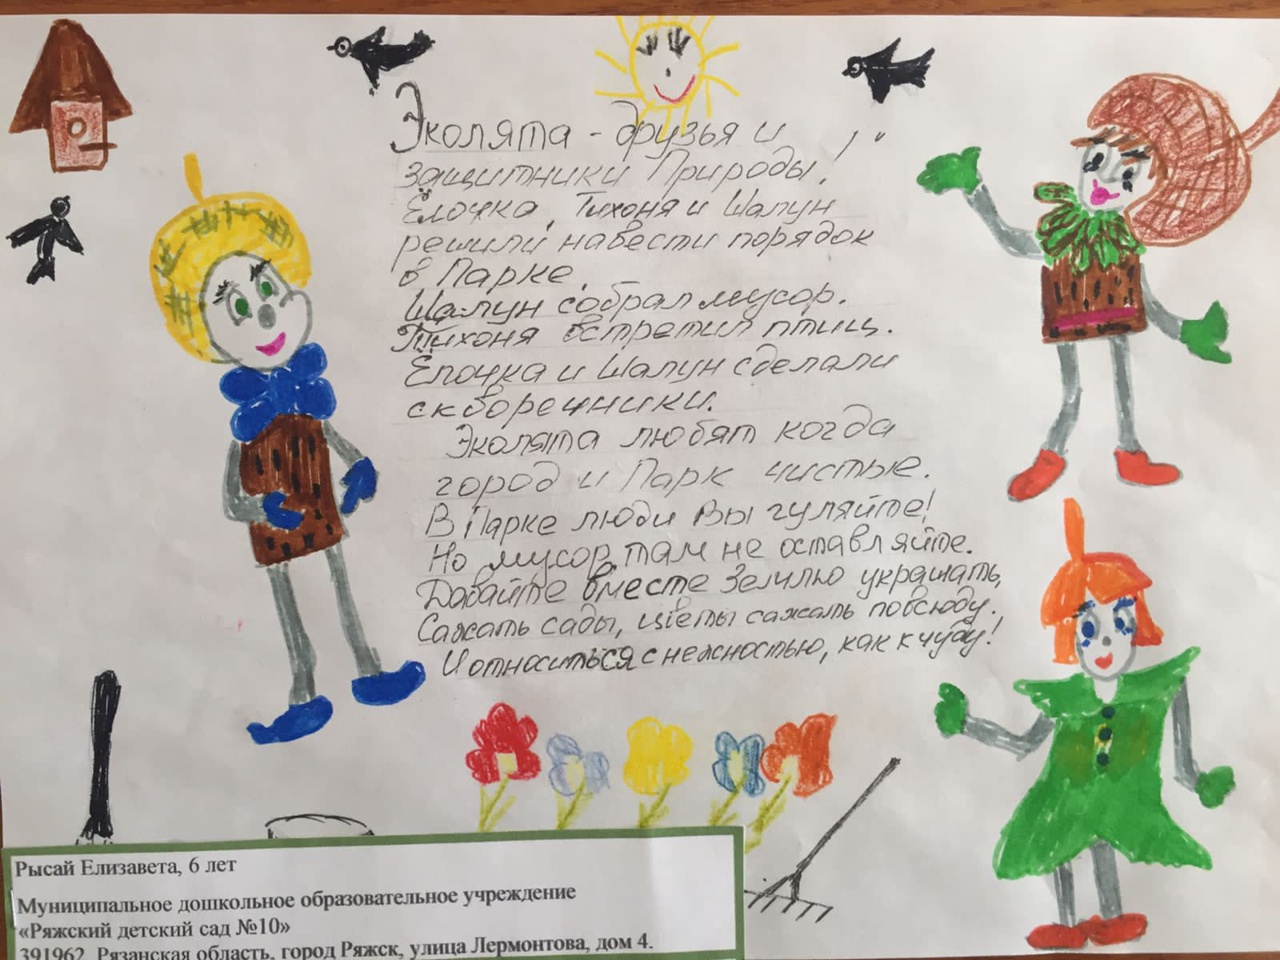 Эколята - друзья и
защитники Природы!
Ёлочка, Тихоня и Шалун
решили навести порядок
в Парке.
Шалун собрал мусор.
Тихоня встретил птиц.
Ёлочка и Шалун сделали
скворечники.
Эколята любят когда
город и Парк чистые.
В Парке люди Вы гуляйте!
Но мусор там не оставляйте.
Давайте вместе Землю украшать,
Сажать сады, цветы сажать повсюду.
И относиться с нежностью, как к чуду!
Рысай Елизавета, 6 лет
Муниципальное дошкольное образовательное учреждение
«Ряжский детский сад №10»
391962, Рязанская область, город Ряжск, улица Лермонтова, дом 4.